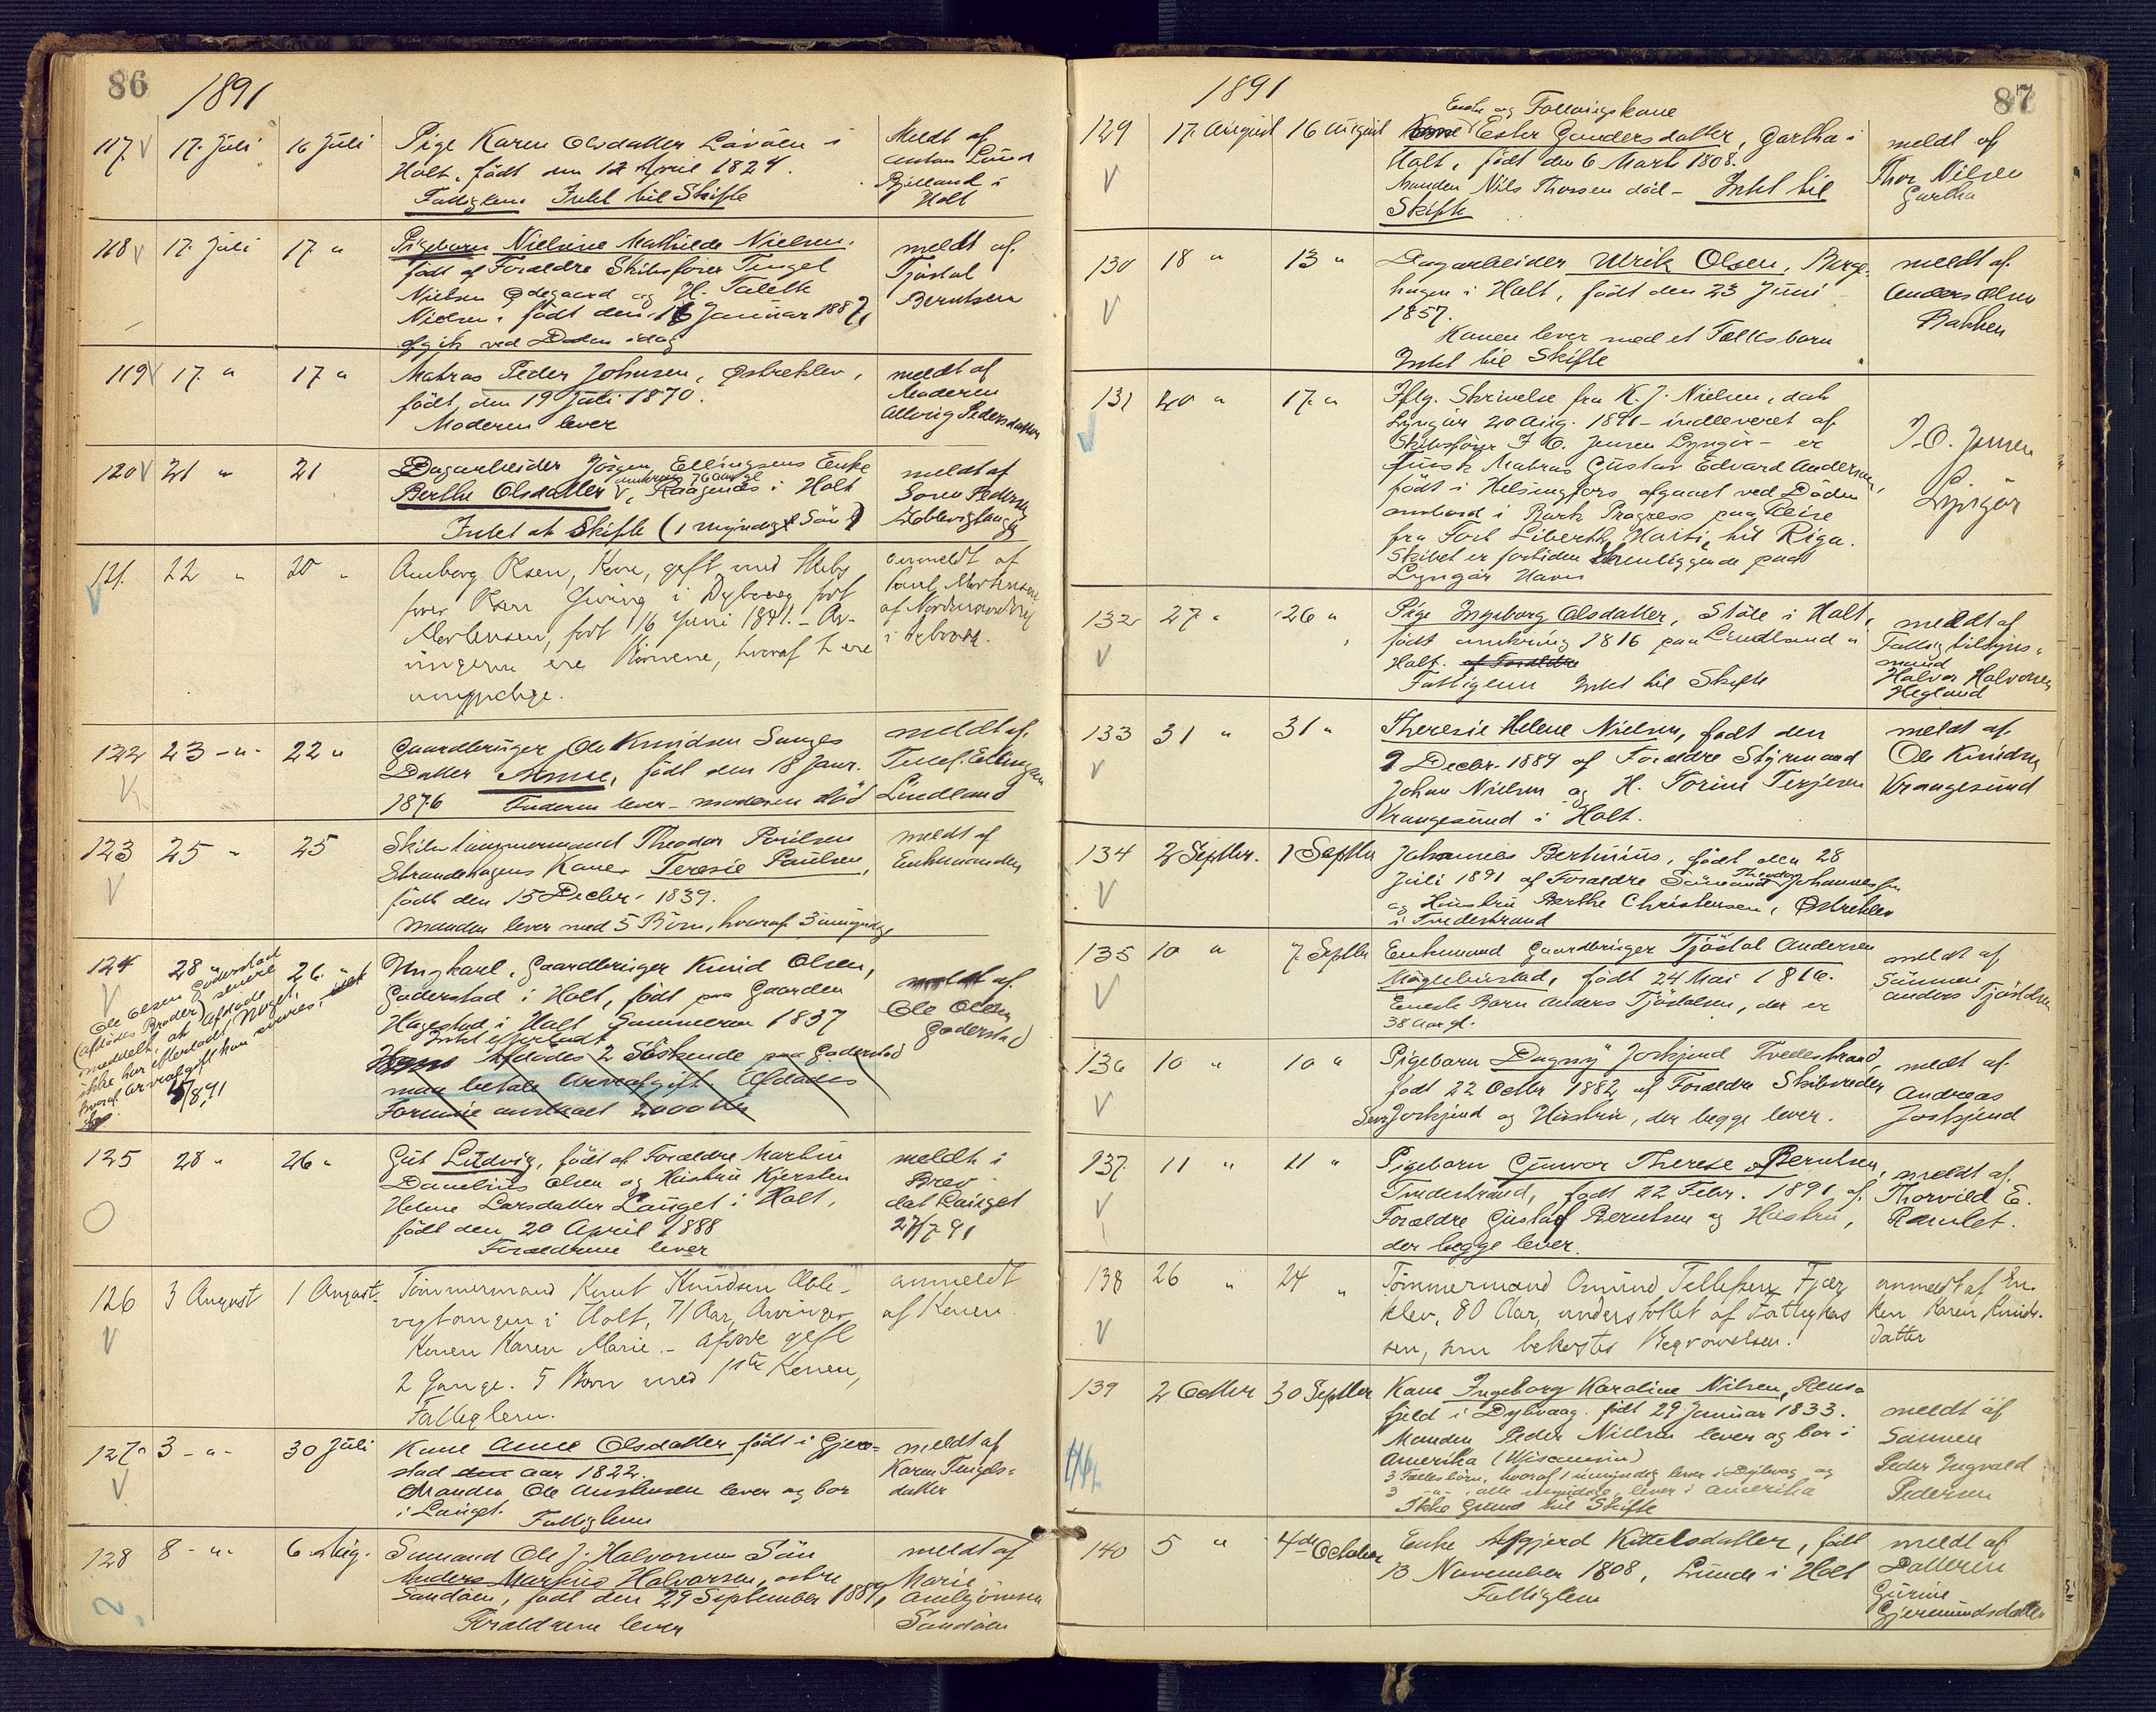 86
1891
117 17. Juli 16 Juli Pige Karen Olsdatter Lövöen i
Holt, födt den 12 April 1824.
Fattiglem. Intet til Skifte
Meldt af
Anton Lund
Bjelland i
Holt
118 17. Juli 17 " Pigebarn Nielsine Mathilde Nielsen.
födt af Forældre Skibsfører Tingel
Nielsen Ødegaard og H. Taleth
Nielsen, födt den 16 Januar 1887,
afgik ved Døden idag
meldt af
Tjöstal
Berntsen
119 17. " 17 " Matros Peder Johnsen, Østreklev,
födt den 19 Juli 1870.
Moderen lever
meldt af
Moderen
Pedersdatter
120 21 " 21 Dagarbeider Jörgen Ellingsens Enke
Berthe Olsdatter, omkring 76 Aar gl. i Holt
Intet at Skifte (1 myndigt Sön)
meldt af
Soren Pedersen
121. 22 " 20 " Olsen, Kone, gift med Skibs
fører Olsen Gjeving i Dybvaag, født
Mortensen, født 1/6 Juni 1841. - Ar-
vingerne ere Börnene, hvoraf 2 ere
umyndige.
anmeldt af
Mortensen
i Dybvaag.
122 23 -"- 22 " Gaardbruger Ole Knudsen Songes
Datter Anne, födt den 18 Janr.
1876 Faderen lever - moderen död
meldt af.
Tellef Ellingsen
Lindland
123 25 " 25 Skibstömmermand Theodor Poulsen
Strandehagens Kone, Teresie Paulsen,
födt den 15 Decbr. 1839.
Manden lever med 5 Börn, hvoraf 3 umyndige
meldt af
Enkemanden
124 28 " 26. " Ungkarl, Gaardbruger Knud Olsen,
Goderstad i Holt, födt paa Gaarden
Hagestad i Holt Sommeren 1837
Intet efterladt
Afdödes 2 Söskende paa Goderstad
maa betale Arveafgift. Afdödes
Formue anslaaet 2000 Kr
Ole Olsen Goderstad
(afdödes Broder) senere
meddelt, at Afdöde
ikke har efterladt Noget,
hvoraf Arveafgift kan svares.
meldt af.
Ole Olsen
Goderstad
125 28 " 26 " Gut Ludvig, födt af Forældre Martin
Danelius Olsen og Hustru Kjersten
Helene Larsdatter Lauget i Holt,
födt den 20 April 1888
Forældrene lever
meldt i
Brev
dat Lauget
27/7 91
126 3 August 1 August Tömmermand Knut Knudsen Able-
vigtangen i Holt, 71 Aar, Arvinger
Konen Karen Marie. - Afdøde gift
2 Gange. 5 Børn med 1ste Konen,
Fattiglem.
anmeldt
af Konen
127 3 -"- 30 Juli Kone Anne Olsdatter födt i Gjer-
stad aar 1822.
Manden Ole lever og bor
i Lauget. Fattiglem
meldt af
Karen Tingels-
datter
128 8 -"- 6 Aug. Sömand Ole J. Halvorsen Sön
Anders Martin Halvorsen, östre
Sandöen, födt den 29 September 1889,
Forældrene lever
meldt af
Marie
Sandöen
1891
87
129 17. August 16 August Enke og Fattigkone
Ester Gundersdatter, Gartha i
Holt, födt den 6 Marts 1808.
Manden Nils Thorsen död - Intet til
Skifte
meldt af
Thor Nilsen
Gartha
130 18 " 13 " Dagarbeider Ulrik Olsen, Berge-
hagen i Holt, födt den 23 Juni
1857.
Konen lever med et Fællesbarn
Intet til Skifte
meldt af.
Anders Olsen
Bakken
131 20 " 17. " Iflg. Skrivelse fra K. J. Nielsen, dat
Lyngör 20 Aug. 1891 - indleveret af
Skibsförer J. O. Jensen Lyngör - er
finsk Matros Gustav Edvard Andersen,
födt i Helsingfors afgaaet ved Döden
ombord i Bark Progress paa Reise
fra Port Liberth, Haiti, til Riga.
Skibet er fortiden henliggende paa
Lyngör Havn
J. O. Jensen
Lyngör
132 27 " 26 " Pige Ingeborg Olsdatter, Stöle i Holt,
födt omkring 1816 paa Lindland i
Holt. af Forældre
Fattiglem Intet til Skifte
meldt af
Fattigtilsyns-
mand
Halvor Halvorsen
Hegland
133 31 " 31 " Theresie Helene Nielsen, födt den
9 Decbr. 1889 af Forældre Styrmand
Johan Nielsen og H. Torine Terjesen
Vrangesund i Holt.
meldt af
Ole Knudsen
Vrangesund
134 2 Septbr. 1 Septbr Johannes Bertinius, födt den 28
Juli 1891 af Forældre Sömand Theodor Johannesen
og Hustru Berthe Christensen, Østreklev
i Tvedestrand
135 10 " 7 Septbr Enkemand Gaardbruger Tjöstal Andersen
Maglebustad, födt 24 Mai 1816.
Eneste Barn Anders Tjöstalsen, der er
38 Aar gl.
meldt af
Sönnen
Anders Tjöstalsen
136 10 " 10 " Pigebarn Dagny Joskjend Tvedestrand,
födt 22 Octbr 1882 af Forældre Skibsreder
Joskjend og Hustru, der begge lever.
meldt af
Andreas
Joskjend
137. 11 " 11 " Pigebarn Gunvor Therese Berntsen,
Tvedestrand, födt 22 Febr. 1891 af
Forældre Gustaf Berntsen og Hustru,
der begge lever.
meldt af.
Thorvild E.
Ramlet.
138 26 " 24 " Tömmermand Omund Tellefsen, Fjær
klev, 80 Aar, understöttet af Fattigkas
sen, som bekoster Begravelsen.
anmeldt af En-
ken Karen Knuds-
datter
139 2 Octbr 30 Septbr Kone Ingeborg Karoline Nilsen, Rens-
fjeld i Dybvaag. födt 29 Januar 1833.
Manden Peder Nielsen lever og bor i
Amerika (Wisconsin)
3 Fællesbörn, hvoraf 1 umyndig lever i Dybvaag og
3 -"- alle myndige, lever i Amerika
Ikke Grund til Skifte
meldt af
Sönnen
Peder Ingvald
Pedersen
140 5 " 4de October Enke Asgjerd Kittelsdatter, födt
13 November 1808, Lunde i Holt
Fattiglem
meldt af
Datteren
Gurine
Gjermundsdatter